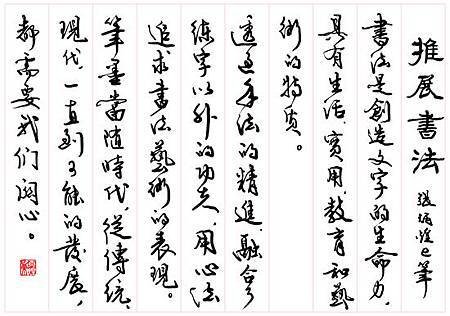 推展書法 張炳煌e筆
書法是創造文字的生命力,
具有生活、實用、教育和藝
術的特質。
透過手法的精進,融合
練字以外的功夫,用心法
追求書法藝術的表現。
筆墨當隨時代,從傳統、
現代,一直到可能的發展,
都需要我們關心。